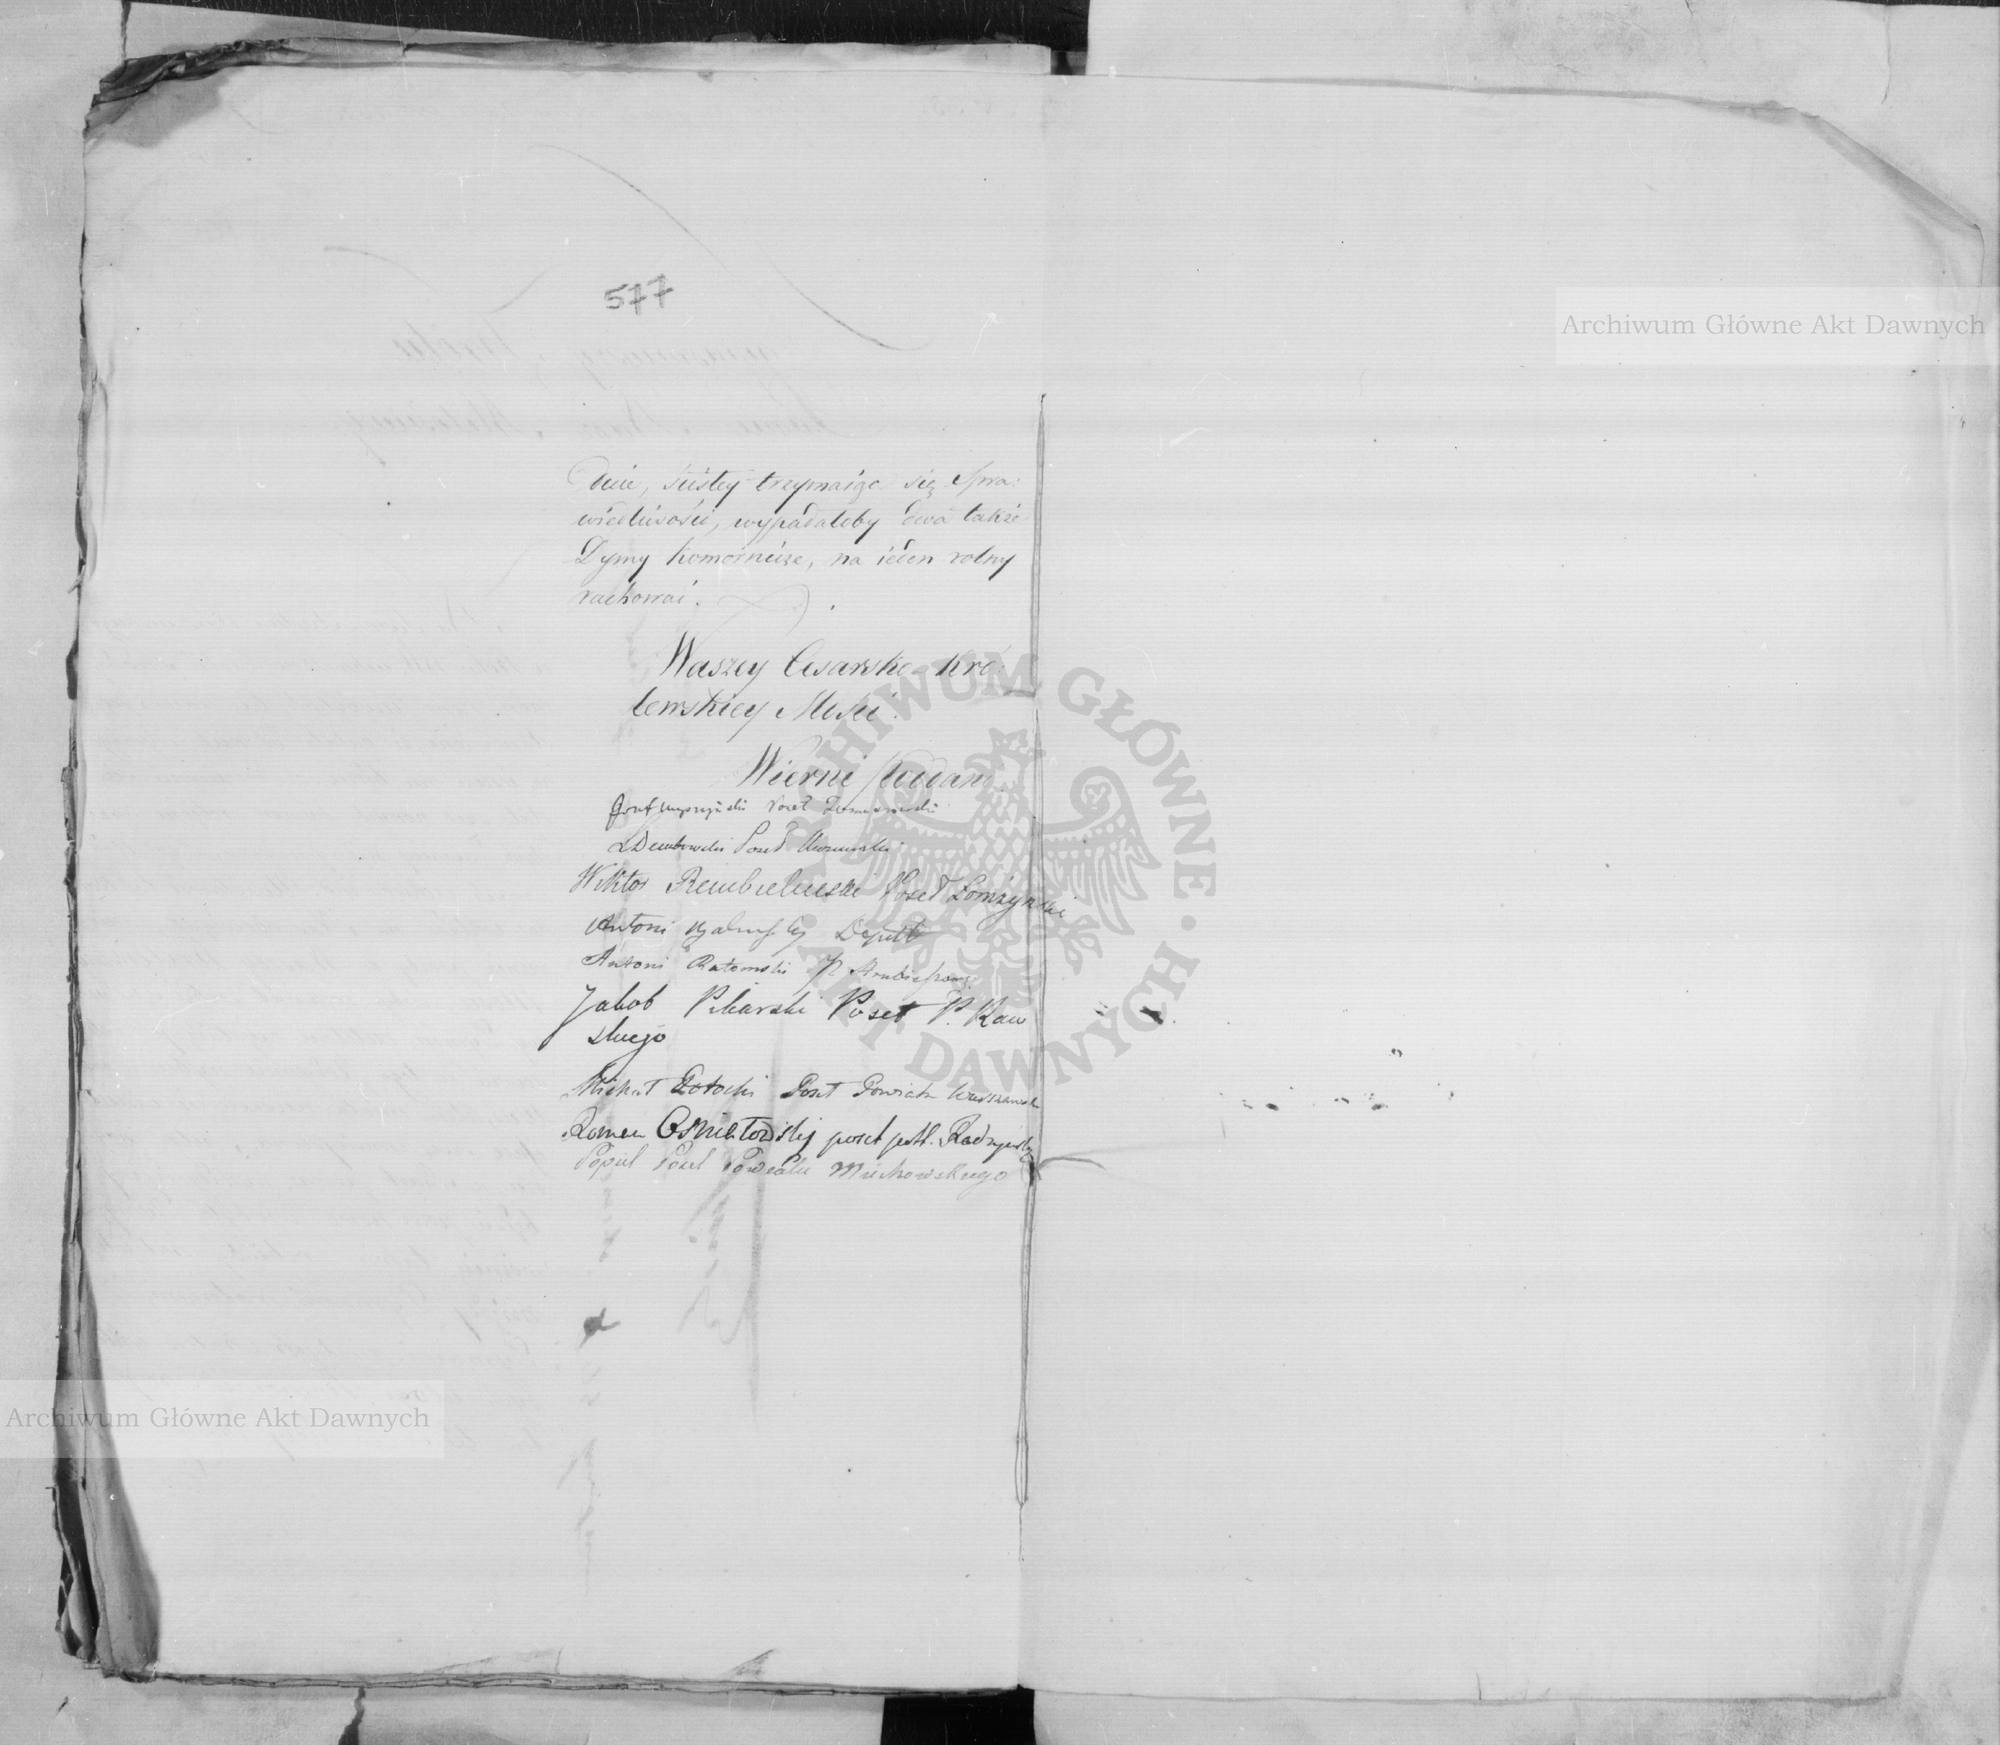 577
Archiwum Główne Akt Dawnych
dnie, ściśley trzymaiąc się Spra:
wiedliwości, wypadałoby dwa także
Dymy komornicze, na ieden rolny
rachować.
Waszey Cesarsko-Kró:
lewskiey Mości.
Wierni Poddani
Poseł
LDembowski Poseł
Wiktor Rembieliński Poseł Łomżyński
Antoni Deput
Antoni
Jakob Pikarski Poseł P. Raw
skiego
Michał Potocki Poseł Powiatu Warszawsk
Roman Osmiałowskij poseł Radzyń
Popiel Poseł Powiatu Miechowskiego
ARCHIWUM GŁÓWNE
AKT DAWNYCH
Archiwum Główne Akt Dawnych